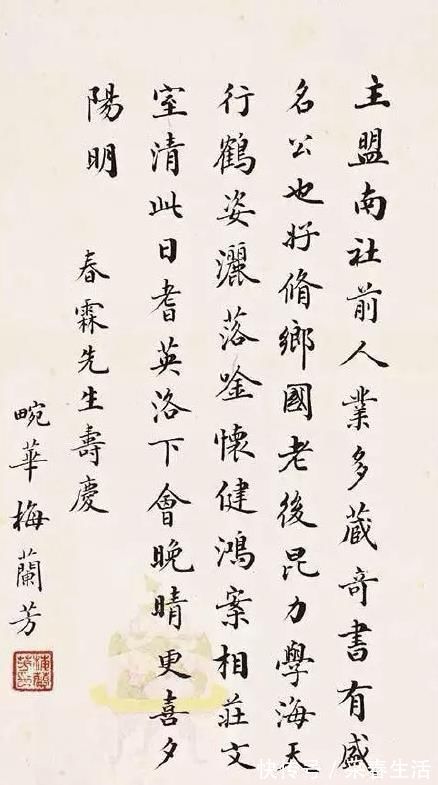 主盟南社前人業多蔵奇書有盛
名公也好脩鄉國老後昆力學海天
行鶴姿灑落唫懷健鴻案相莊文
室清此日耆英洛下會晚晴更喜夕
陽明
春霖先生壽慶
畹華梅蘭芳
快传号/荣春生活